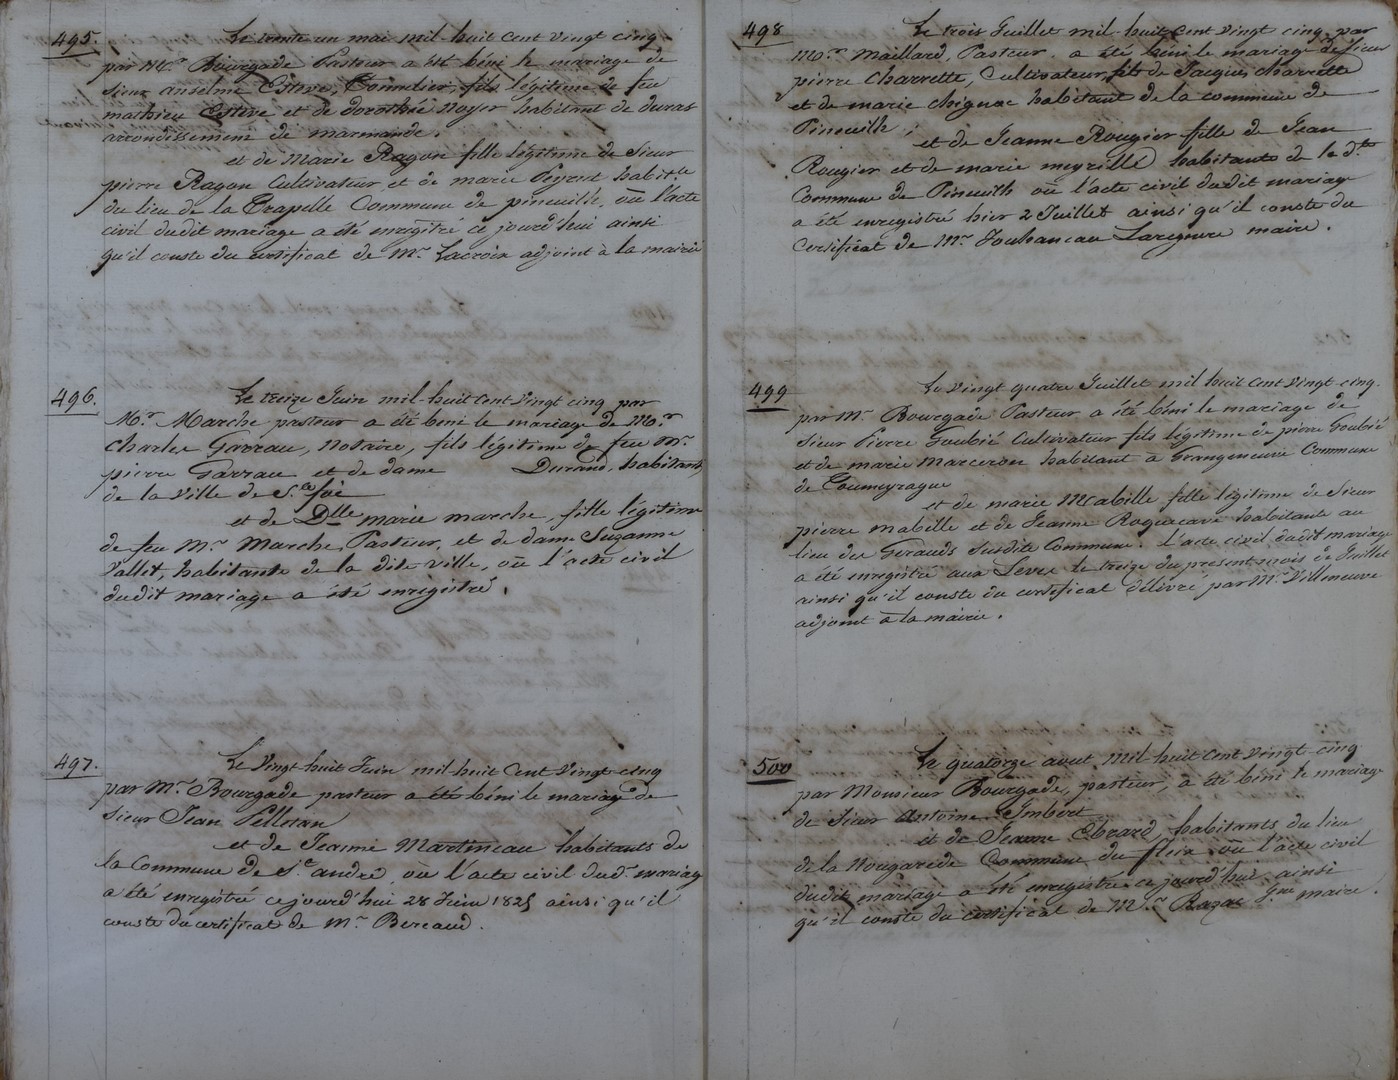 495.
Le trente un mai mil-huit cent vingt cinq
par Mr. Bourgade Pasteur a été béni le mariage de
Sieur anselme Esteve, Tonnelier, fils légitime de feu
mathieu Esteve et de dorothée Noyer habitant de duras
arrondissement de marmande.
et de Marie Ragon fille légitime de Sieur
pierre Ragon Cultivateur et de marie habit.te
du lieu de la Commune de pineuilh, où l'acte
civil dudit mariage a été enrgitré ce jourd'hui ainsi
qu'il conste du certificat de Mr. Lacroix adjoint à la mairie
496.
Le treize Juin mil-huit Cent Vingt cinq par
Mr. Marche pasteur a été beni le mariage de Mr.
Charles Garrau, Notaire, fils légitime de feu Mr.
pierre Garrau et de dame Durand, habitant
de la Ville de Ste. foi
et de Dlle marie marche, fille légitime
de feu Mr. Marche, Pasteur, et de dame Suzanne
Vallet, habitante de la dite ville, où l'acte civil
dudit mariage a été enregistré.
497.
Le Vingt huit Juin mil huit Cent Vingt cinq
par Mr. Bourgade pasteur a été béni le mariage de
Sieur Jean Pellotan
et de Jeanne Martineau habitants de
la Commune de St. andré, où l'acte civil dud.t mariag
a été enregistré cejourd'hui 28 Juin 1825 ainsi qu'il
conste du certificat de Mr. Bereaud.
498
Le trois Juillet mil-huit Cent vingt cinq, par
Mr. Maillard, Pasteur a été béni le mariage de Sieur
pierre Charrette, Cultivateur, fils de Jacques Charrette
et de marie Chignac habitant de la commune de
Pineuilh;
et de Jeanne Rougier fille de Jean
Rougier et de marie meyrille habitants de la d.te
Commune de Pineuilh où l'acte civil dudit mariage
a été enregistré hier 2 Juillet ainsi qu'il conste du
Certificat de Mr. Jouhaneau Laregnere maire.
499
Le Vingt quatre Juillet mil huit Cent Vingt-cinq.
par Mr. Bourgade Pasteur a été béni le mariage de
Sieur Pierre Goubié Cultivateur fils légitime de pierre Goubié
et de marie Marceron habitant a Grangeneuve Commune
de
et de marie Mabille fille légitime de Sieur
pierre mabille et de Jeanne Roquecave habitant au
lieu des Girauds Susdite Commune. L'acte civil dudit mariage
a été enregistré aux Leves le treize du present mois de Juillet
ainsi qu'il conste du certificat délivré par Mr. Villeneuve
adjoint à la mairie.
500
Le quatorze aout mil huit Cent Vingt-cinq
par Monsieur Bourgade, pasteur, a été béni le mariage
de Sieur Antoine Imbert
et de Jeanne Ebrard, habitants du lieu
de la Nougarede Commune du fleix où l'acte civil
dudit mariage a été enregistré cejourd'hui ainsi
qu'il conste du certificat de Mr. Razac maire.